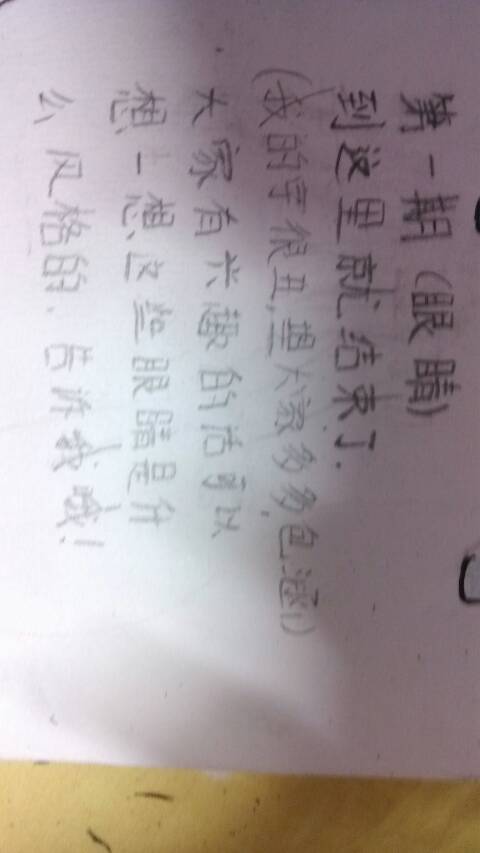 第一期(眼睛)
到这里就结束了.
(我的字很丑,望大家多多包涵!)
大家有兴趣的话可以
想一想这些眼睛是什
么风格的.告诉我哦!